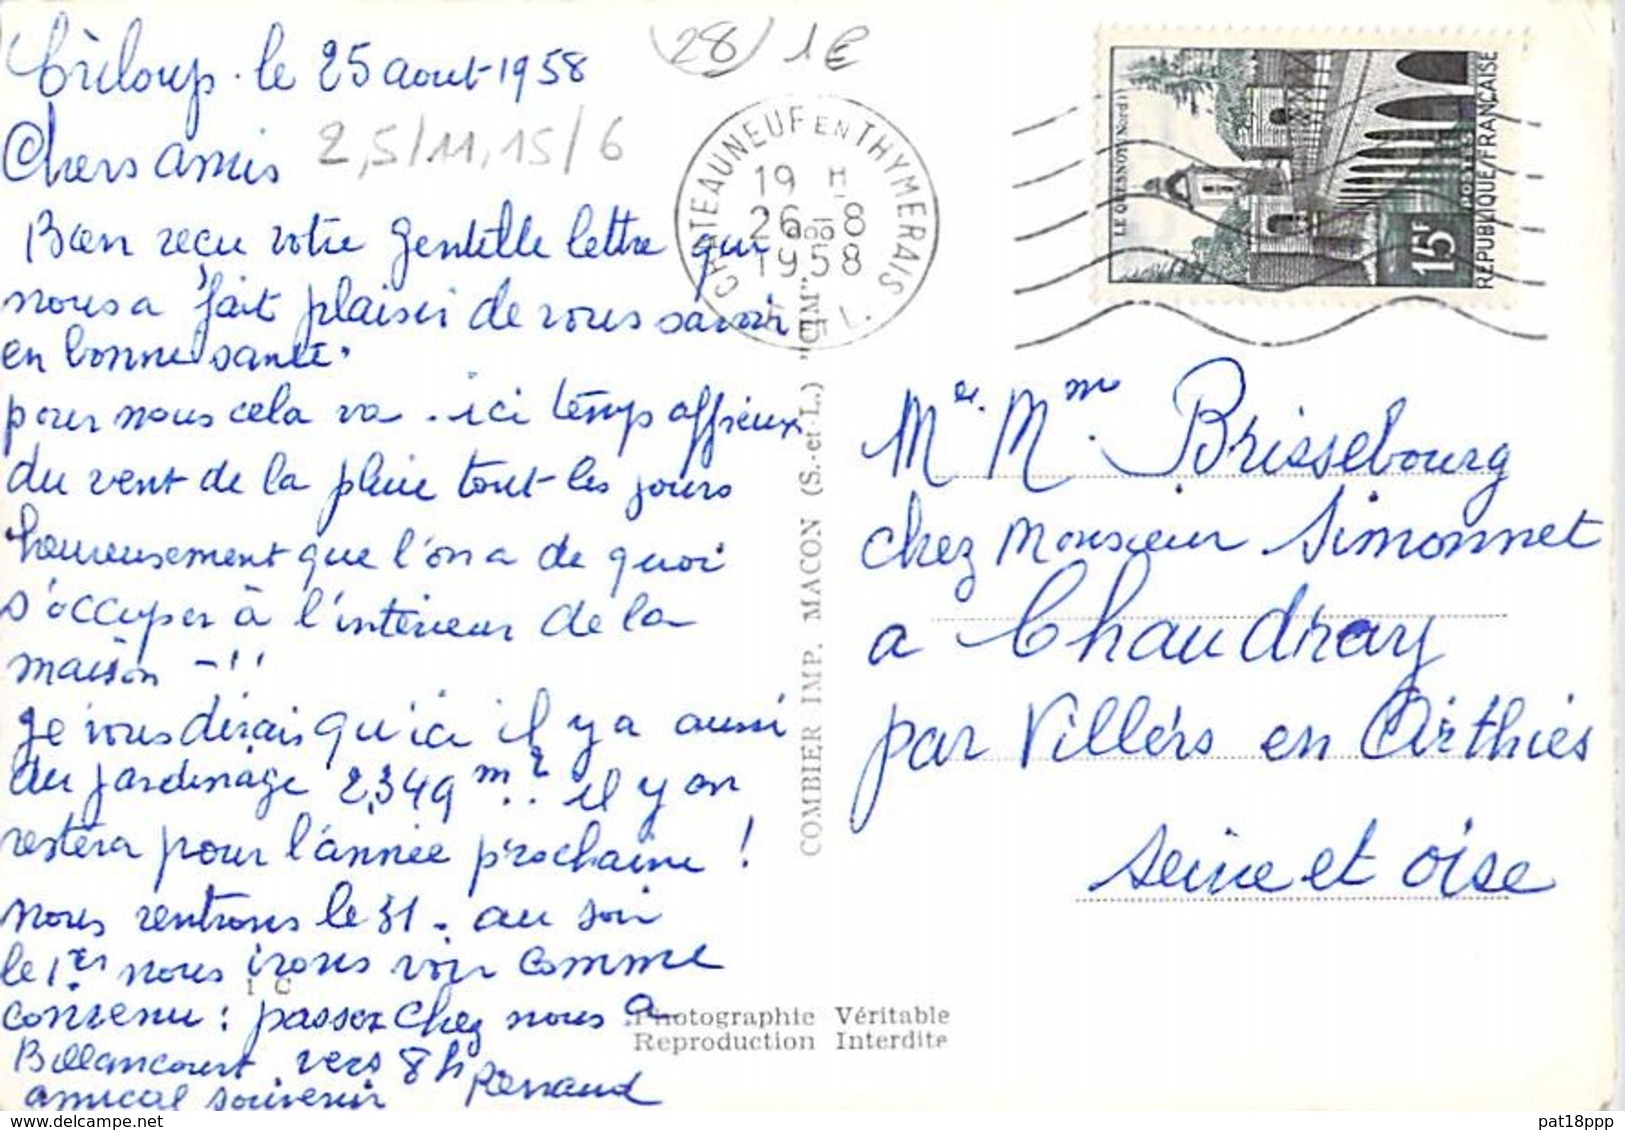 Criloup. le 25 aout 1958
28 1€
Chers amis
2,5/11,15/6
Bien reçu votre gentille lettre qui
nous a fait plaisir de vous savoir
en bonne santé.
pour nous cela va. ici temps affreux
du vent de la pluie tout les jours
heureusement que l'on a de quoi
s'occuper à l'intérieur de la
maison - !!
je vous dirais qu'ici il y a aussi
du jardinage 2,349 m² .. il y en
restera pour l'année prochaine !
nous rentrons le 31. au soir
le 1er nous irons voir comme
convenu : passez chez nous a
Billancourt vers 8 h Renaud
amical souvenir
CHATEAUNEUF EN THYMERAIS
19 H
26-8
1958
E. L.
LE QUESNOY (Nord)
15F
POSTES
REPUBLIQUE FRANÇAISE
COMBIER IMP. MACON (S.-et-L.) "CIM"
Mr. Mme. Brissebourg
chez Monsieur Simonnet
a Chaudray
par Villers en Arthies
Seine et Oise
1 C
Photographie Véritable
Reproduction Interdite
pat18ppp